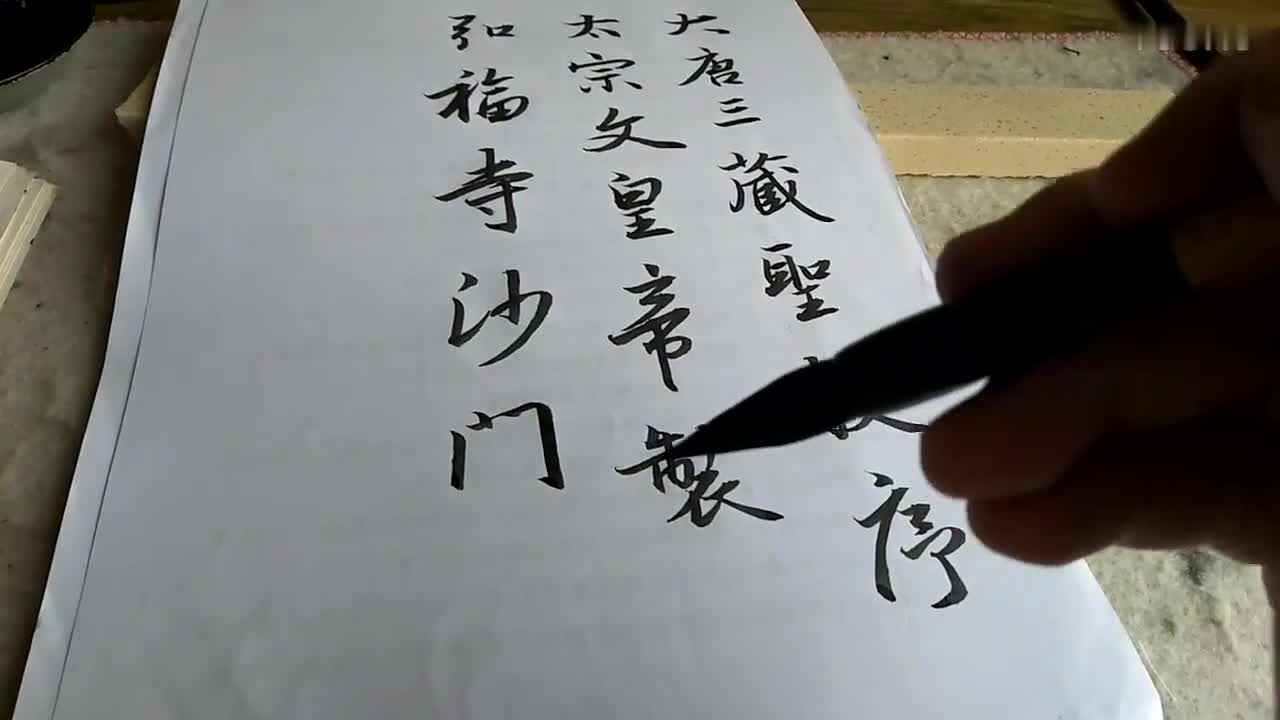 大唐三藏聖教序
太宗文皇帝製
弘福寺沙門